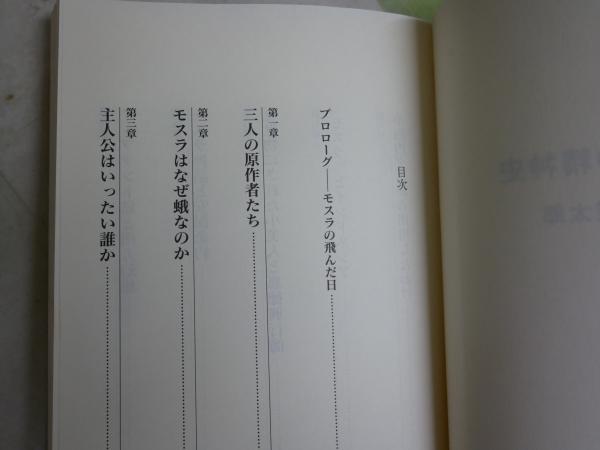 目次
プロローグ――モスラの飛んだ日
第一章
三人の原作者たち
第二章
モスラはなぜ蛾なのか
第三章
主人公はいったい誰か
精神史